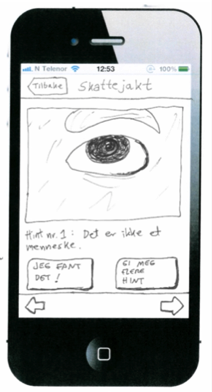 N Telenor 12:53 100%
Tilbake Skattejakt
Hint nr. 1: Det er ikke et
menneske.
JEG FANT
DET!
SI MEG
FLERE
HINT